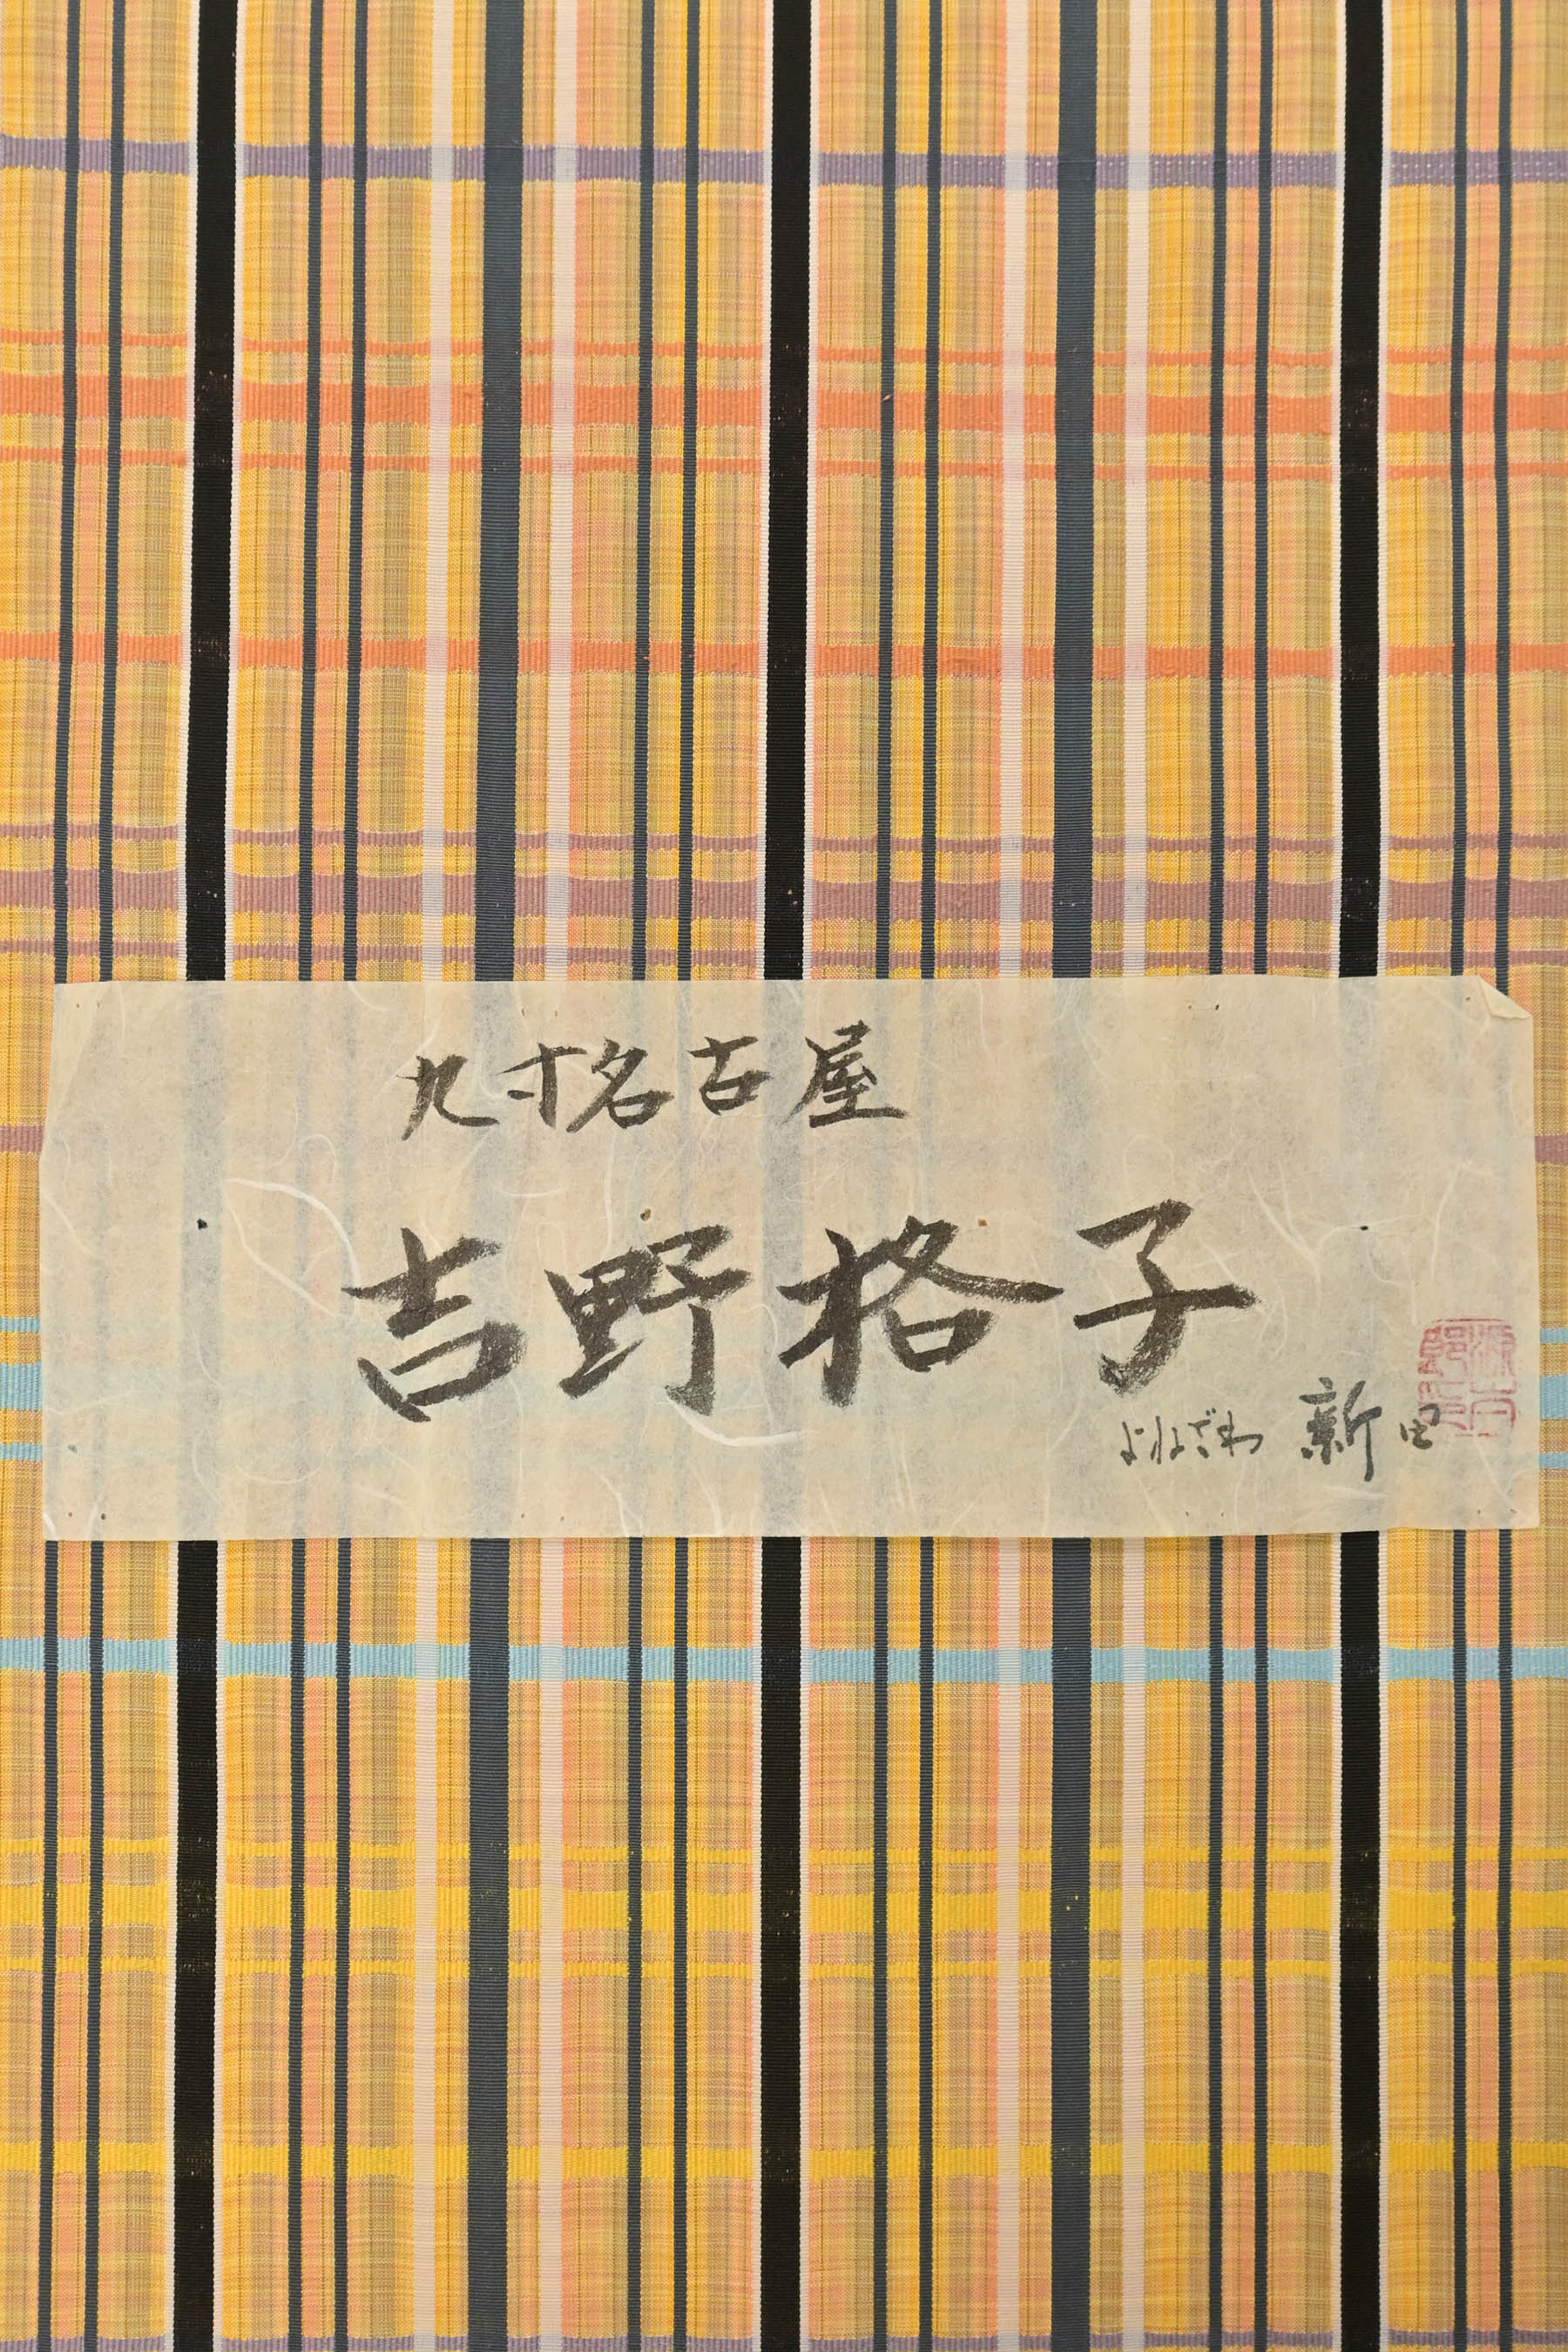 九寸名古屋
吉野格子
よねざわ 新田